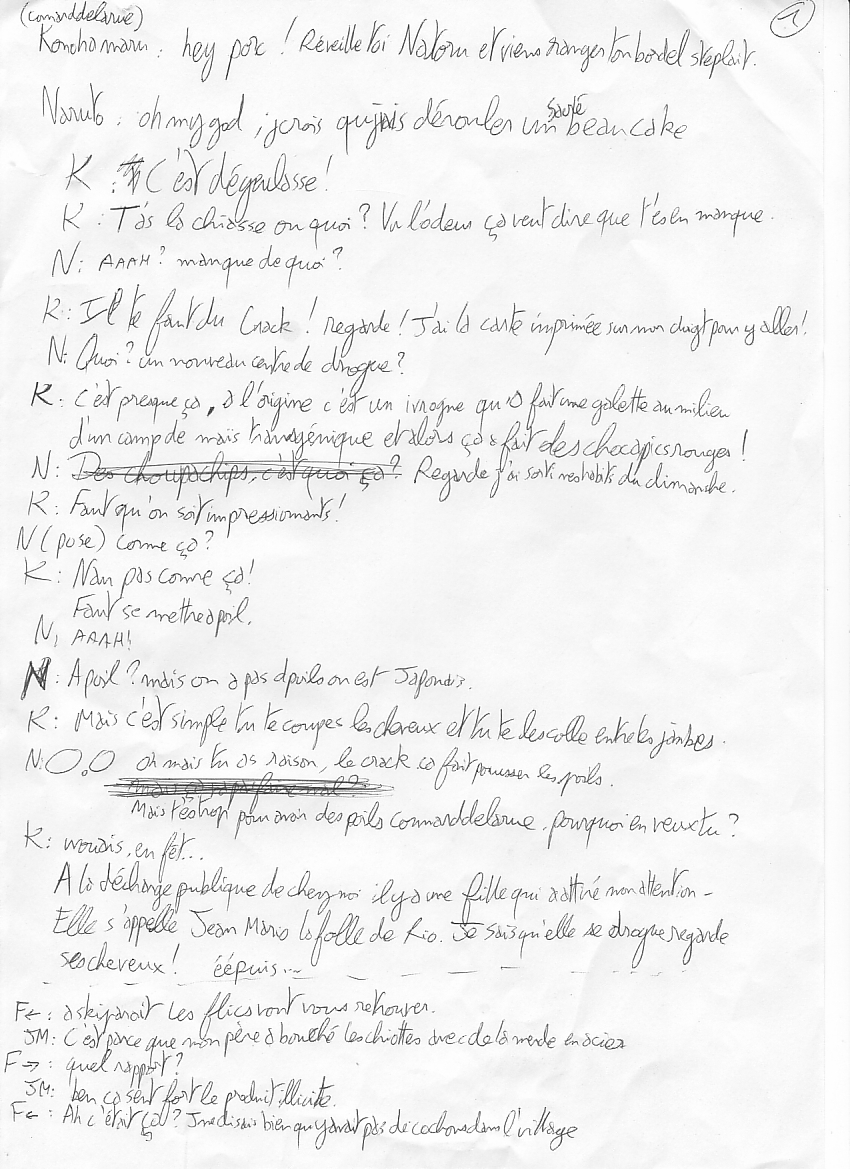 (connarddelarue)
1
Konohamaru : hey porc ! Réveille toi Natoru et viens ranger ton bordel steplait.
Naruto : oh my god, jcrois qu'jvais dérouler un sauté beau cake
K : C'est dégeulasse !
K : T'as la chiasse ou quoi ? Vu l'odeur ça veut dire que t'es en manque.
N : AAAH ? manque de quoi ?
K : Il te faut du Crack ! regarde ! J'ai la carte imprimée sur mon doigt pour y aller !
N : Quoi ? un nouveau centre de drogue ?
K : c'est presque ça, à l'origine c'est un ivrogne qu'a fait une galette au milieu
d'un camp de maïs transgénique et alors ça a fait des chocapics rouges !
N : Des choupachips, c'est quoi ça ? Regarde j'ai sorti mes habits du dimanche.
K : Faut qu'on soit impressionnants !
N (pose) comme ça ?
K : Nan pas comme ça !
Faut se mettre a poil.
N, AAAH !
N : A poil ? mais on a pas d'poils on est Japonais.
K : Mais c'est simple tu te coupes les cheveux et tu te les colle entre les jambes.
N : O.O oh mais tu as raison, le crack ça fait pousser les poils.
Mais t'es trop pour avoir des poils connarddelarue, pourquoi en veux tu ?
K : wouais, en fet...
A la décharge publique de chez moi il y a une fille qui a attiré mon attention -
Elle s'appelle Jean Mario la folle de Rio. Je sais qu'elle se drogue regarde
ses cheveux ! éépuis...
F← : askiparait les flics vont vous retrouver.
JM : C'est parce que mon père a bouché les chiottes avec de la merde en acier
F→ : quel rapport ?
JM : ben ça sent fort le produit illicite.
F← : Ah c'était ça ? J'me disais bien qu'y avait pas de cochons dans l'village